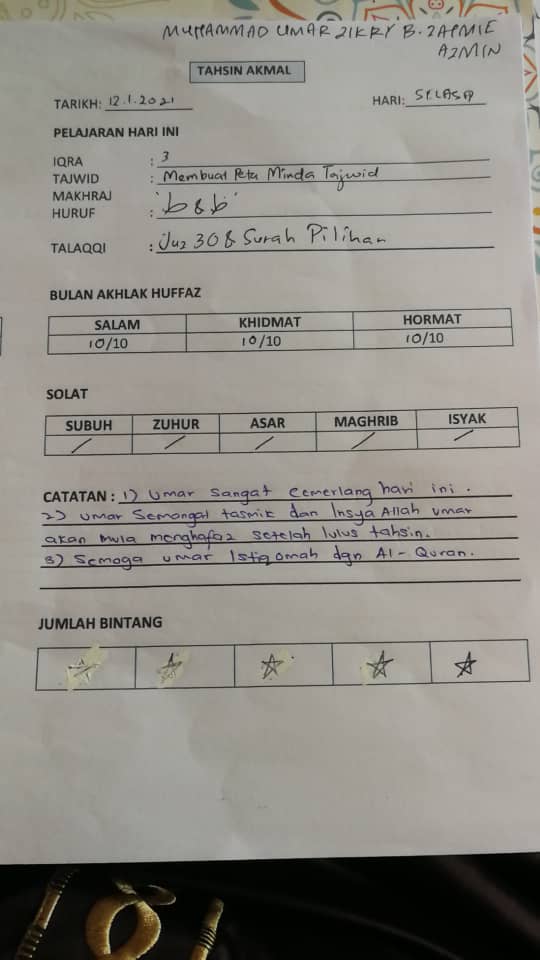 MUHAMMAD UMAR ZIKRY B. ZAPMIE
AZMIN
TAHSIN AKMAL
TARIKH: 12.1.2021 HARI: SELASA
PELAJARAN HARI INI
IQRA : 3
TAJWID : Membuat Peta Minda Tajwid
MAKHRAJ
HURUF :
TALAQQI : Juz 30 & Surah Pilihan
BULAN AKHLAK HUFFAZ
SALAM KHIDMAT HORMAT
10/10 10/10 10/10
SOLAT
SUBUH ZUHUR ASAR MAGHRIB ISYAK
/ / / / /
CATATAN : 1) Umar sangat cemerlang hari ini.
2) Umar Semangat tasmik dan Insya Allah umar
akan mula menghafaz setelah lulus tahsin.
3) Semoga umar Istiqomah dgn Al-Quran.
JUMLAH BINTANG